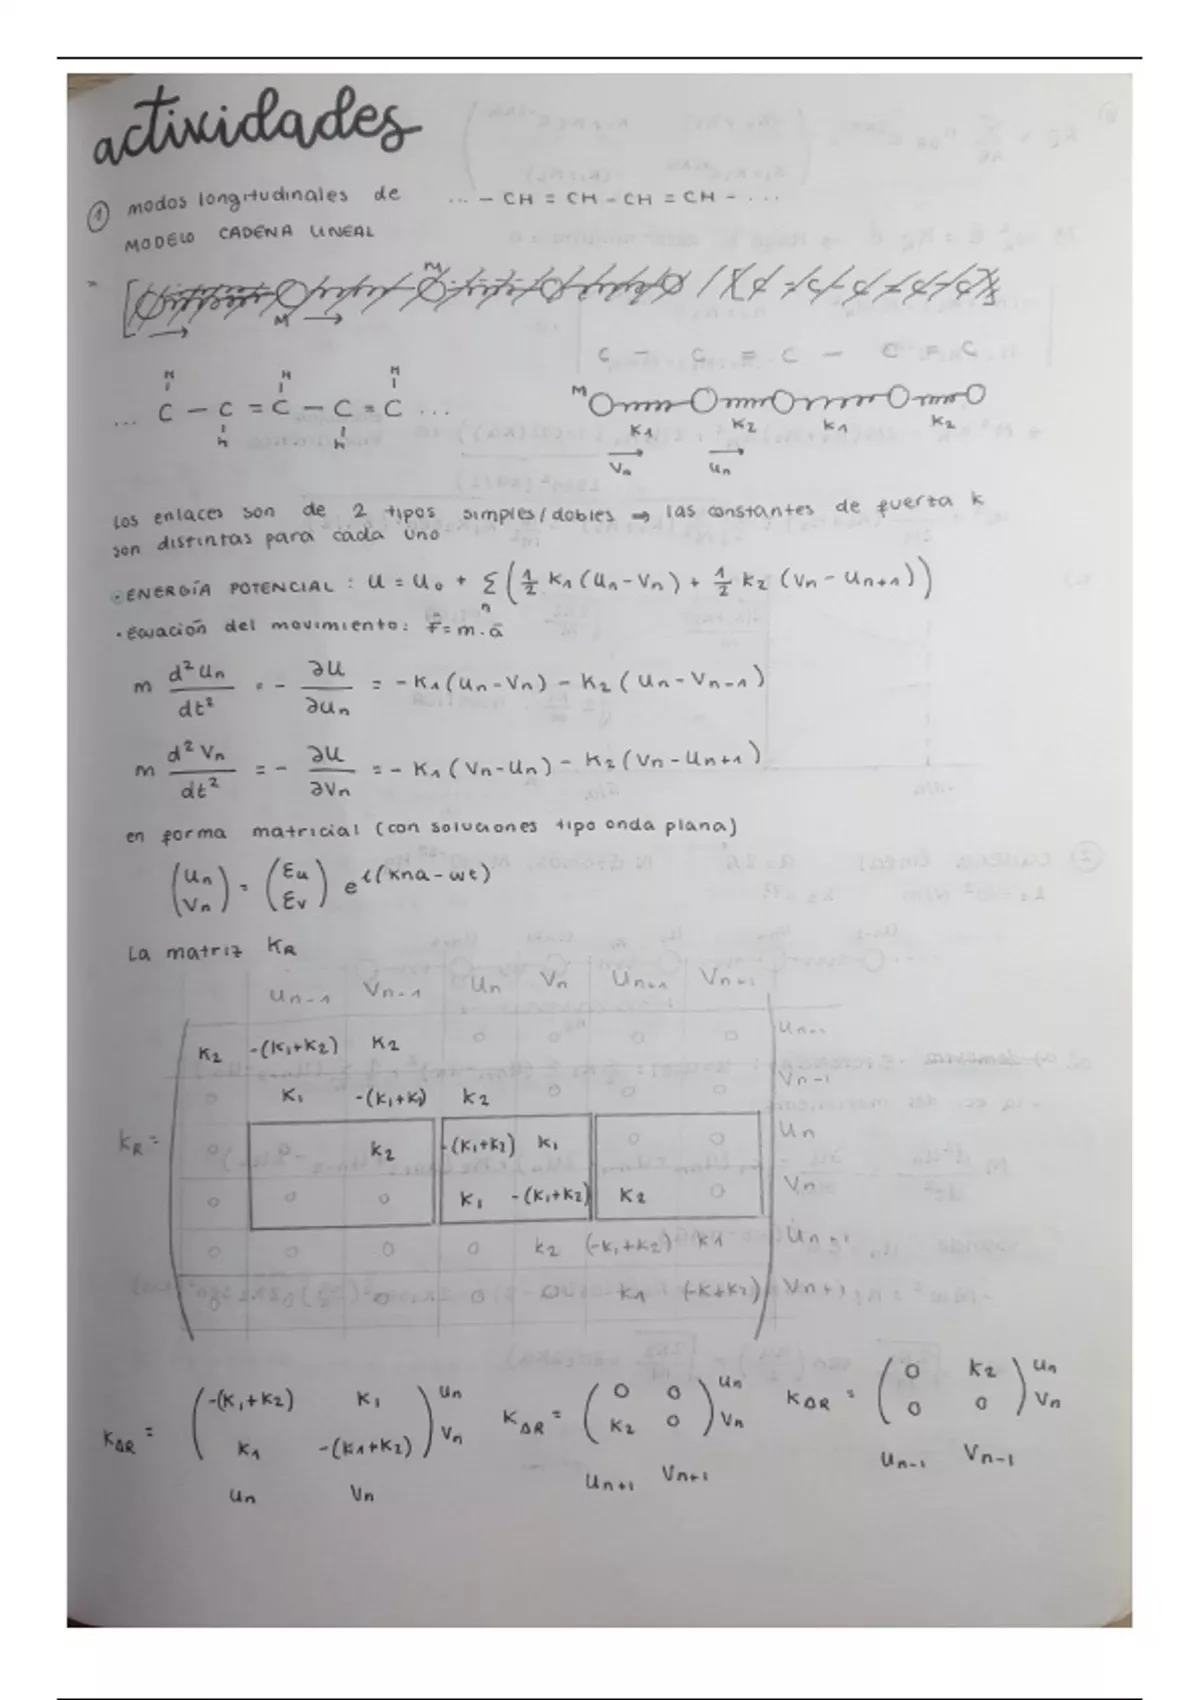 actividades
① modos longitudinales de ... – CH = CH – CH = CH – ...
MODELO CADENA LINEAL
M
M
C – C = C – C = C
H H H
... C – C = C – C = C ...
H H
M
K1 K2 K1 K2
Vn un
los enlaces son de 2 tipos simples/dobles ⇒ las constantes de fuerza k
son distintas para cada uno
• ENERGÍA POTENCIAL : U = U0 + Σn (1/2 K1 (un - Vn) + 1/2 K2 (Vn - un+1))
• Ecuación del movimiento: F = m.a
m d²un/dt² = - ∂U/∂un = - K1 (un - Vn) - K2 (un - Vn-1)
m d²Vn/dt² = - ∂U/∂Vn = - K1 (Vn - un) - K2 (Vn - un+1)
en forma matricial (con soluciones tipo onda plana)
(un Vn) = (Eu Ev) e i(kna - wt)
La matriz KR
un-1 Vn-1 un Vn un+1 Vn+1
K2 -(K1+K2) K2 0 0 0 0 un-1
0 K1 -(K1+K2) K2 0 0 0 Vn-1
KR = 0 0 K2 -(K1+K2) K1 0 0 un
0 0 0 K1 -(K1+K2) K2 0 Vn
0 0 0 0 K2 (-K1+K2) K1 un+1
0 0 0 K1 (-K+K2) Vn+1
KΔR = (-(K1+K2) K1) un KΔR = (0 0) un KΔR = (0 K2) un
(K1 -(K1+K2)) Vn (K2 0) Vn (0 0) Vn
un Vn un+1 Vn+1 un-1 Vn-1